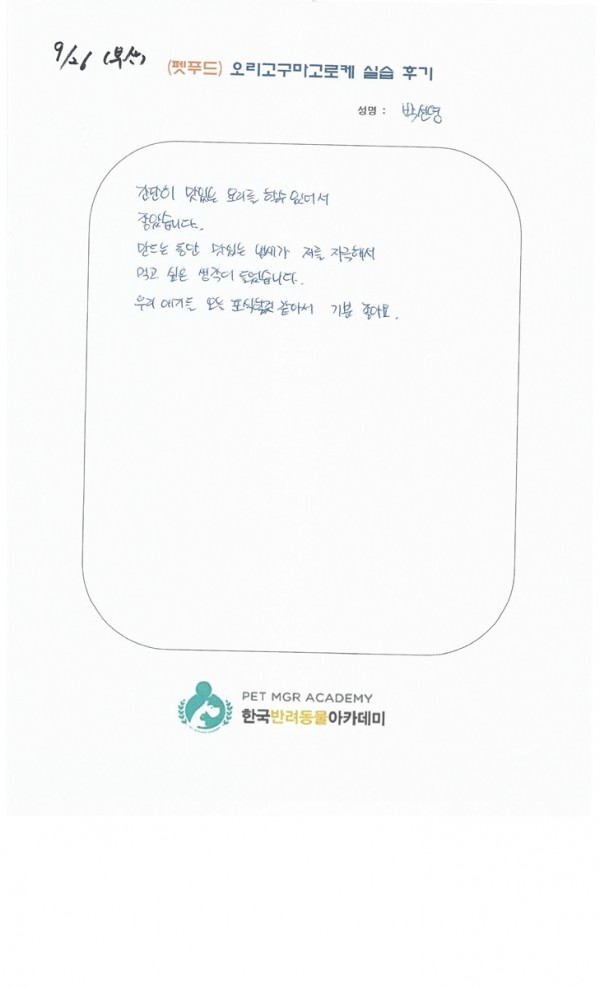 9/26 (부산)
(펫푸드) 오리고구마고로케 실습 후기
성명 : 박선영
간단히 맛있는 요리를 할수 있어서
좋았습니다.
만드는 동안 맛있는 냄새가 저를 자극해서
먹고 싶은 생각이 들었습니다.
우리 애기들 오늘 포식할것 같아서 기분 좋아요.
PET MGR ACADEMY
한국반려동물아카데미